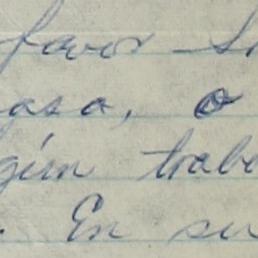 favor S
gasa, o
gún trab
. En su